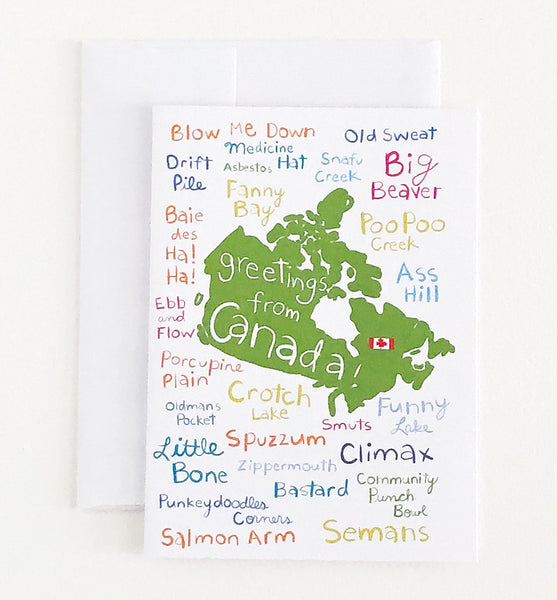 Blow Me Down
Old Sweat
Medicine
Hat
Drift
Pile
Asbestos
Snafu
Creek
Big
Beaver
Fanny
Bay
Baie
des
Ha!
Ha!
PooPoo
Creek
greetings
from
Canada!
Ass
Hill
Ebb
and
Flow
Porcupine
Plain
Oldmans
Pocket
Crotch
Lake
Smuts
Funny
Lake
Little
Bone
Spuzzum
Climax
Zippermouth
Bastard
Community
Punch
Bowl
Punkeydoodles
Corners
Salmon Arm
Semans